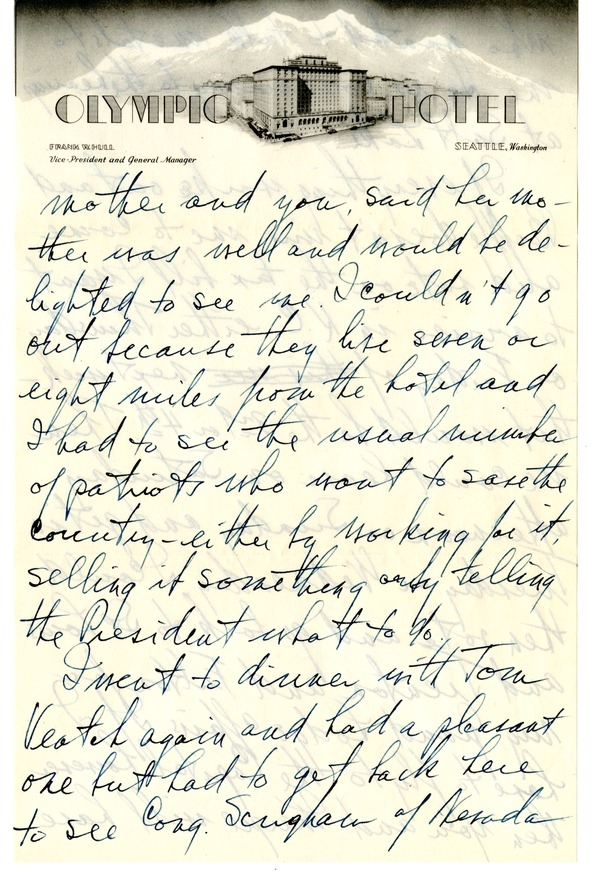 OLYMPIC HOTEL
FRANK W. HULL
Vice-President and General Manager
SEATTLE, Washington
mother and you, said her mo-
ther was well and would be de-
lighted to see me. I couldn't go
out because they live seven or
eight miles from the hotel and
I had to see the usual number
of patriots who want to save the
country - either by working for it,
selling it something or by telling
the President what to do.
I went to dinner with Tom
Veatch again and had a pleasant
one but had to get back here
to see Cong. Scrugham of Nevada